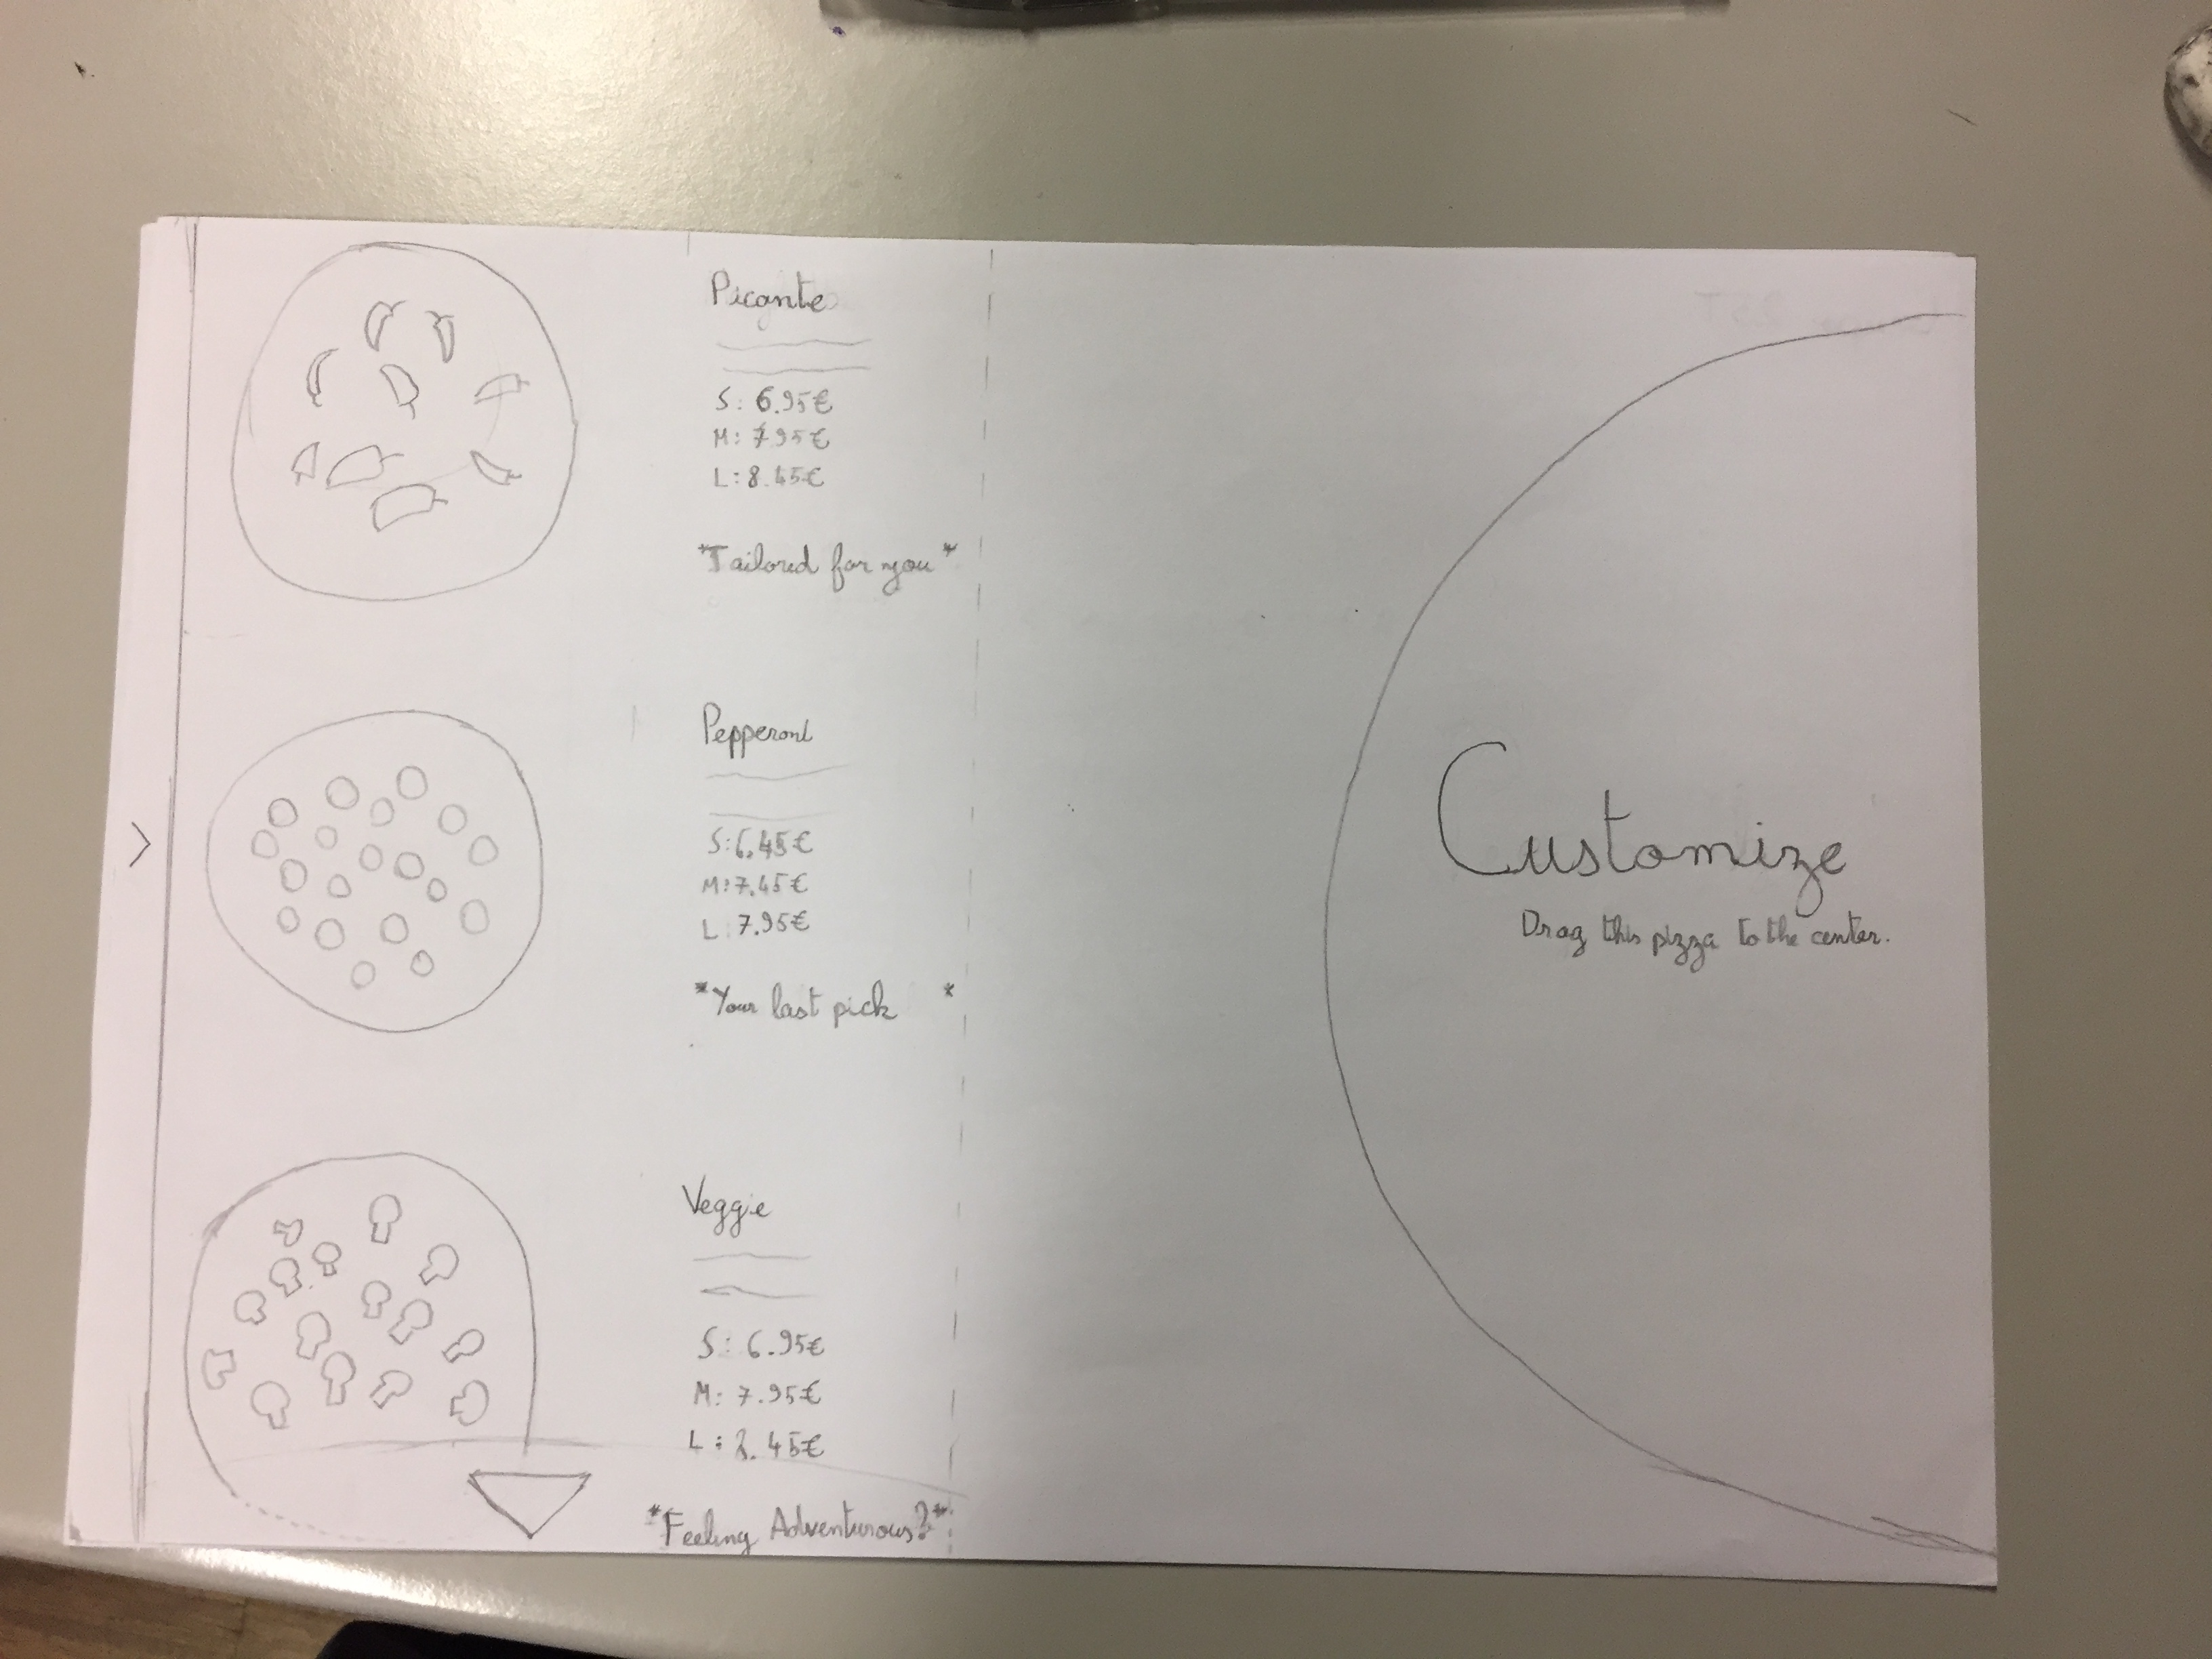 Picante
S: 6.95€
M: 7.95€
L: 8.45€
*Tailored for you*
Pepperoni
S: 6.45€
M: 7.45€
L: 7.95€
*Your last pick *
Veggie
S: 6.95€
M: 7.95€
L: 8.45€
*Feeling Adventurous?*
>
Customize
Drag this pizza to the center.